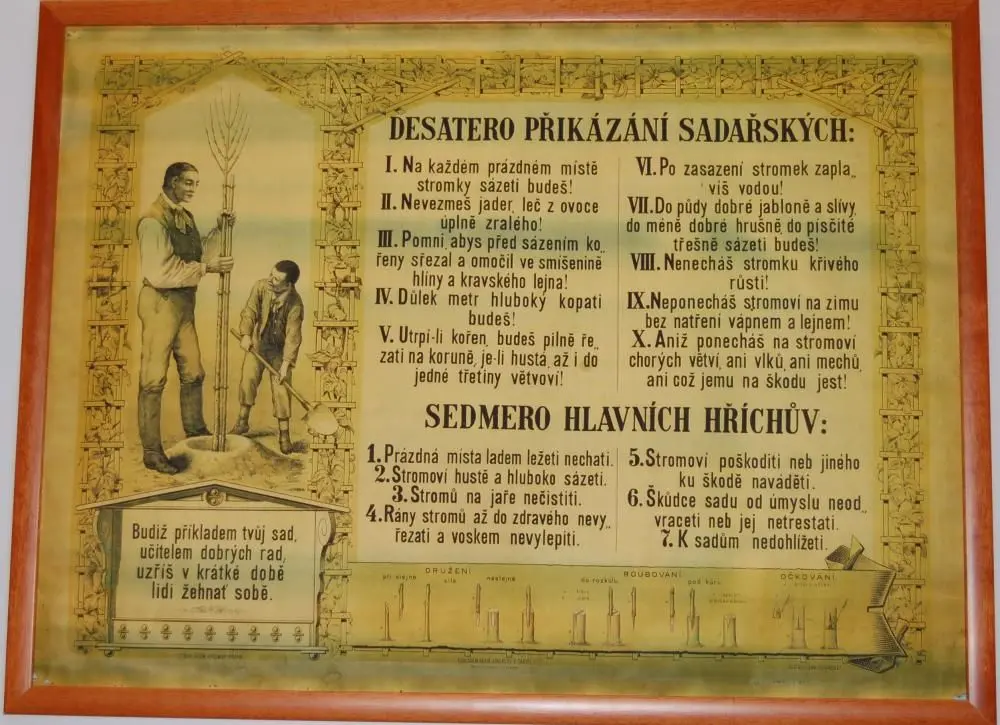 DESATERO PŘIKÁZÁNÍ SADAŘSKÝCH:
I. Na každém prázdném místě
stromky sázeti budeš!
II. Nevezmeš jader, leč z ovoce
úplně zralého!
III. Pomni, abys před sázením ko„
řeny sřezal a omočil ve smíšenině
hlíny a kravského lejna!
IV. Důlek metr hluboký kopati
budeš!
V. Utrpí-li kořen, budeš pilně ře„
zati na koruně, je-li hustá, až i do
jedné třetiny větvoví!
VI. Po zasazení stromek zapla„
víš vodou!
VII. Do půdy dobré jabloně a slívy,
do méně dobré hrušně, do písčité
třešně sázeti budeš!
VIII. Nenecháš stromku křivého
růsti!
IX. Neponecháš stromoví na zimu
bez natření vápnem a lejnem!
X. Aniž ponecháš na stromoví
chorých větví, ani vlků, ani mechů,
ani což jemu na škodu jest!
SEDMERO HLAVNÍCH HŘÍCHŮV:
1. Prázdná místa ladem ležeti nechati.
2. Stromoví hustě a hluboko sázeti.
3. Stromů na jaře nečistiti.
4. Rány stromů až do zdravého nevy„
řezati a voskem nevylepiti.
5. Stromoví poškoditi neb jiného
ku škodě naváděti.
6. Škůdce sadu od úmyslu neod„
vraceti neb jej netrestati.
7. K sadům nedohlížeti.
Budiž příkladem tvůj sad,
učitelem dobrých rad,
uzříš v krátké době
lidi žehnať sobě.
DRUŽENÍ
ROUBOVÁNÍ
OČKOVÁNÍ
při stejné
síle
nestejné
do rozkolu
pod kůru